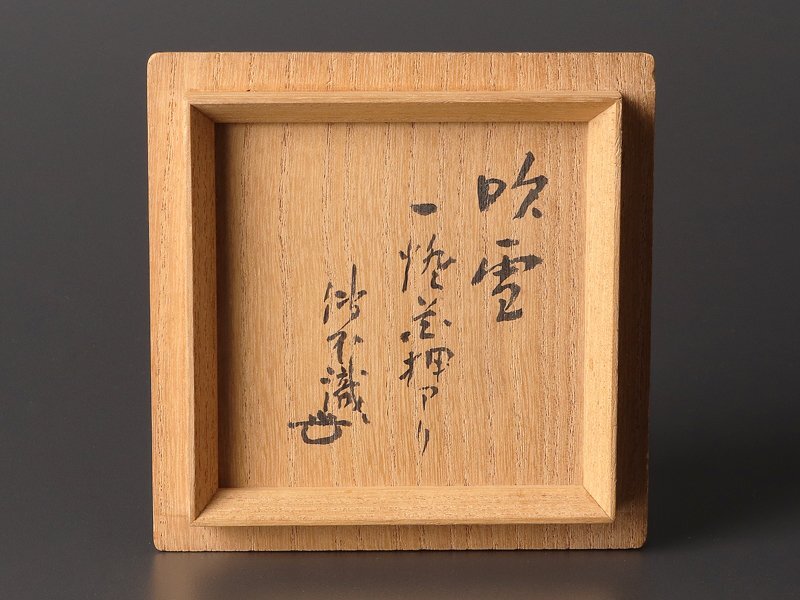 吹雪
一燈花押アリ
不識